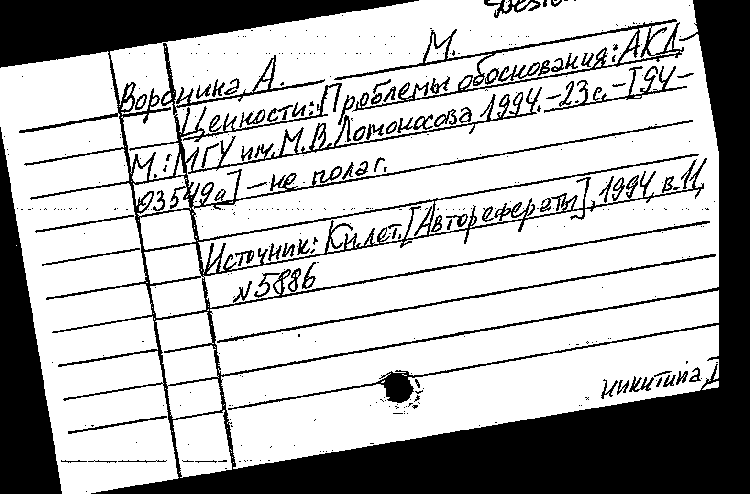 Воронина, А. М.
Ценности: Проблемы обоснования: АКД.-
М.: МГУ им. М.В. Ломоносова, 1994.-23с.-[94-
03549а] - не полаг.
Источник: Кн. лет. [Авторефераты], 1994, в.11,
N5886
Никитина,